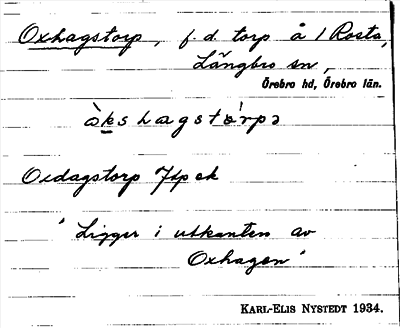 Oxhagstorp, f.d. torp å 1 Rosta,
Längbro sn,
Örebro hd, Örebro län.
àkshagstòrpə
Oxdagstorp Jdp ek
"Ligger i utkanten av
Oxhagen"
KARL-ELIS NYSTEDT 1934.